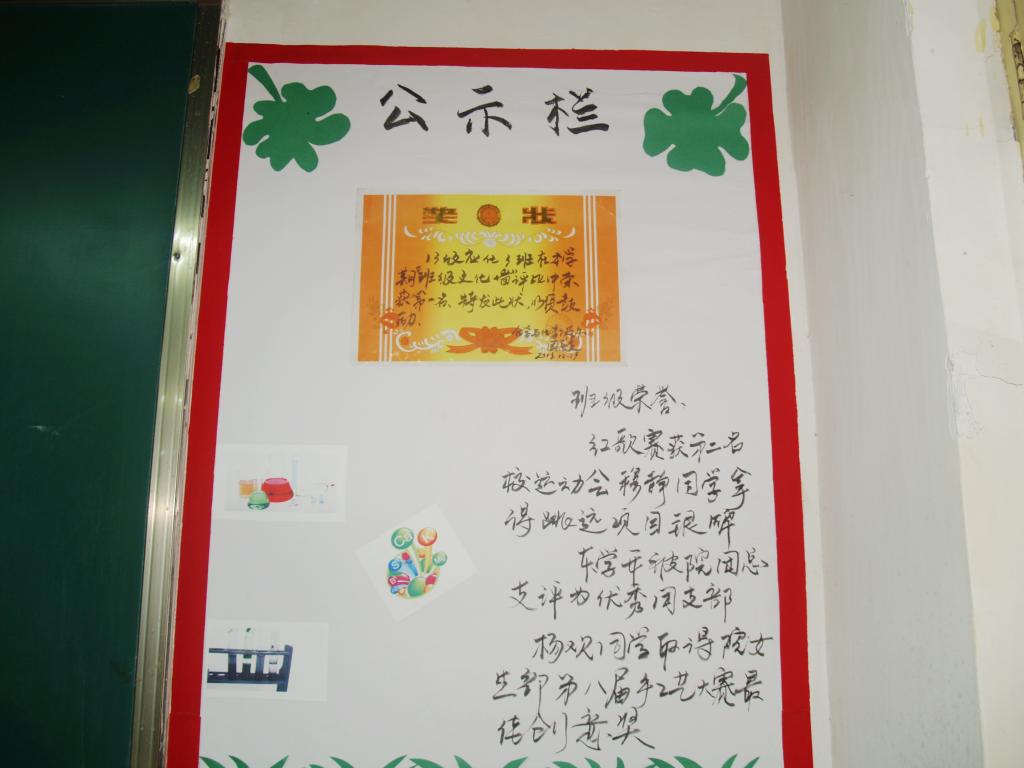 公示栏
奖状
13级应化3班在本学
期班级文化墙评比中荣
获第一名、特发此状,以资鼓
励.
班级荣誉、
红歌赛获第二名
校运动会穆静同学拿
得跳远项目银牌
本学年被院团总
支评为优秀团支部
杨观同学取得院女
生部第八届手工艺大赛最
佳创意奖